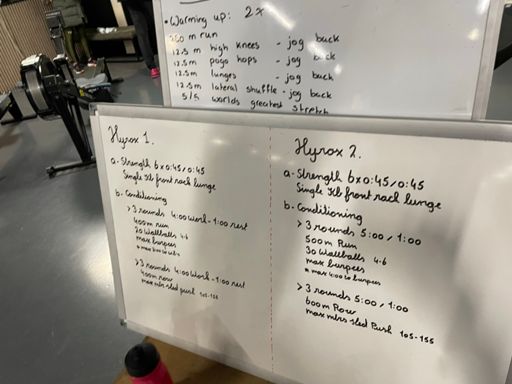 • Warming up: 2x
250 m run
12.5 m high knees - jog back
12.5 m pogo hops - jog back
12.5m lunges - jog back
12.5 m lateral shuffle - jog back
5/5 worlds greatest stretch
Hyrox 1.
a. Strength 6x0:45/0:45
Single kb front rack lunge
b. Conditioning
> 3 rounds 4:00 work - 1:00 rest
400m run
20 Wallballs 4-6
max burpees
> 3 rounds 4:00 work - 1:00 rest
400m row
max mtrs sled push 105-155
Hyrox 2.
a. Strength 6x0:45/0:45
Single kb front rack lunge
b. Conditioning
> 3 rounds 5:00 / 1:00
500m Run
30 Wallballs 4-6
max burpees
* max 4:00 to burpees
> 3 rounds 5:00 / 1:00
600m Row
max mtrs sled Push 105-155